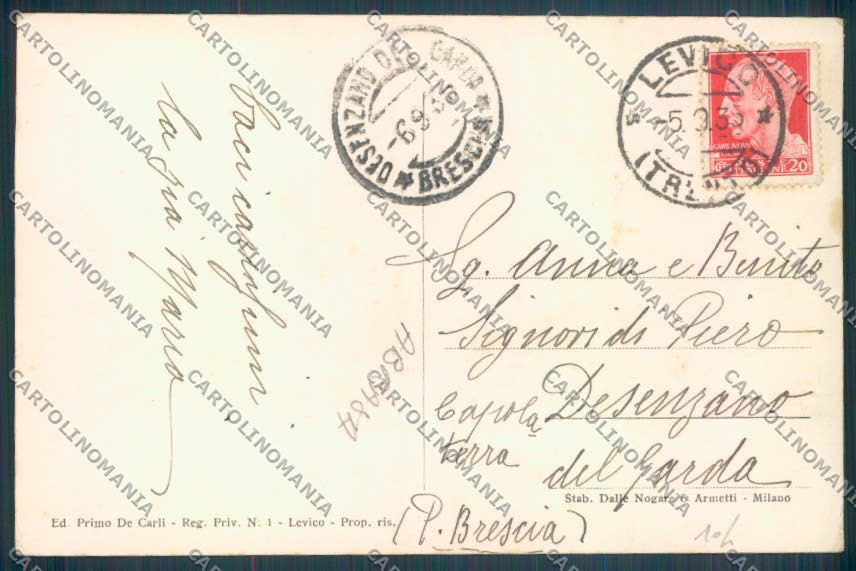 baci carissimi
la zia Maria
DESENZANO DEL GARDA
-6.9.3
BRESCIA
LEVICO
-5.9.35
(TRENTO)
20
Sg. Anna e Benito
Signori di Piero
Capola
terra
Desenzano
del Garda
(P. Brescia)
ABRASA
Stab. Dalle Nogare & Armetti - Milano
Ed. Primo De Carli - Reg. Priv. N. 1 - Levico - Prop. ris.
CARTOLINOMANIA